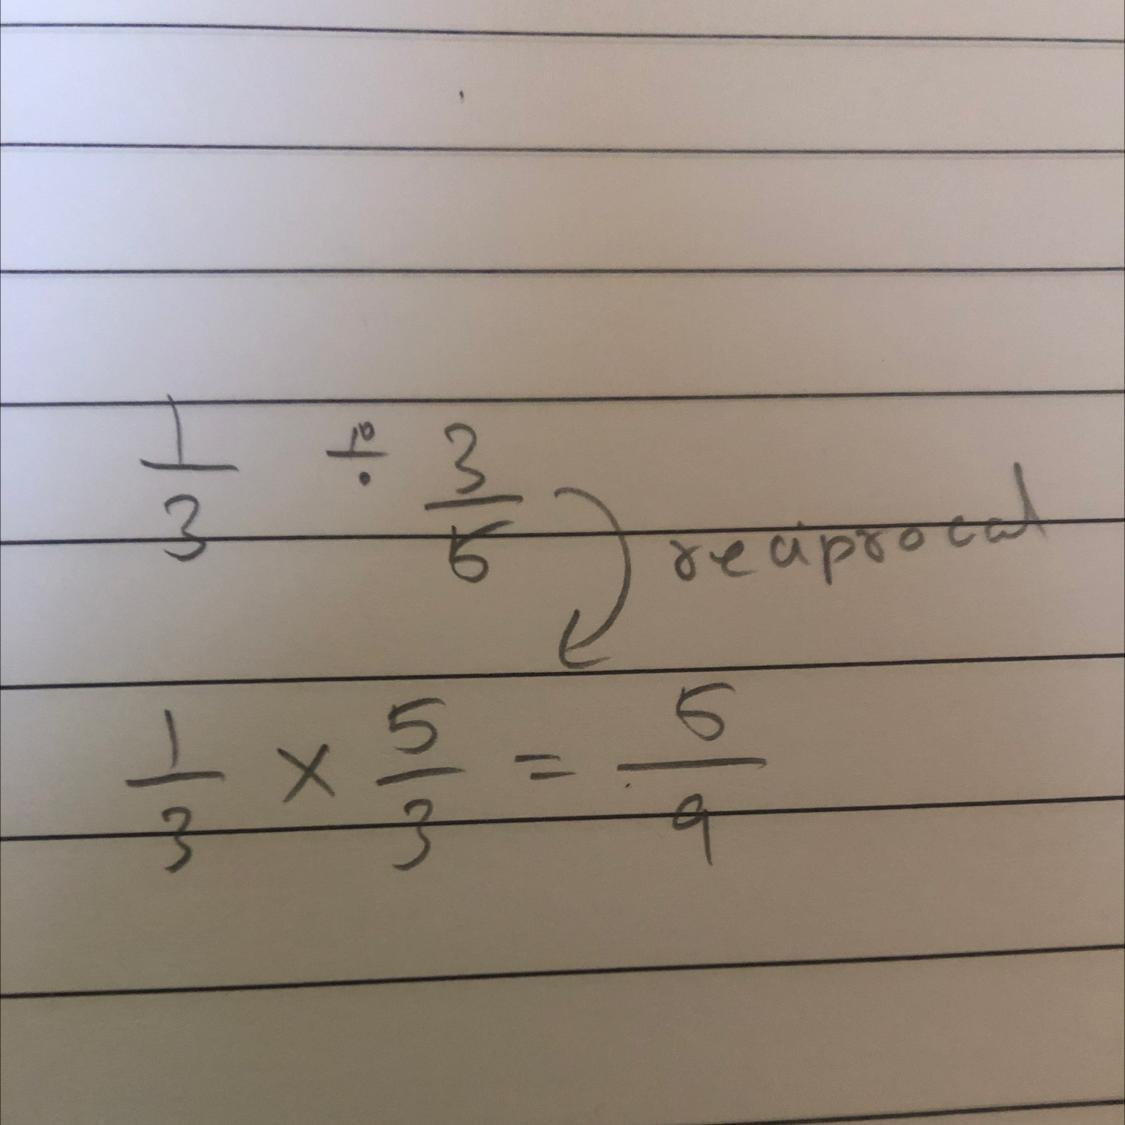 1/3 ÷ 3/5 reciprocal
1/3 × 5/3 = 5/9